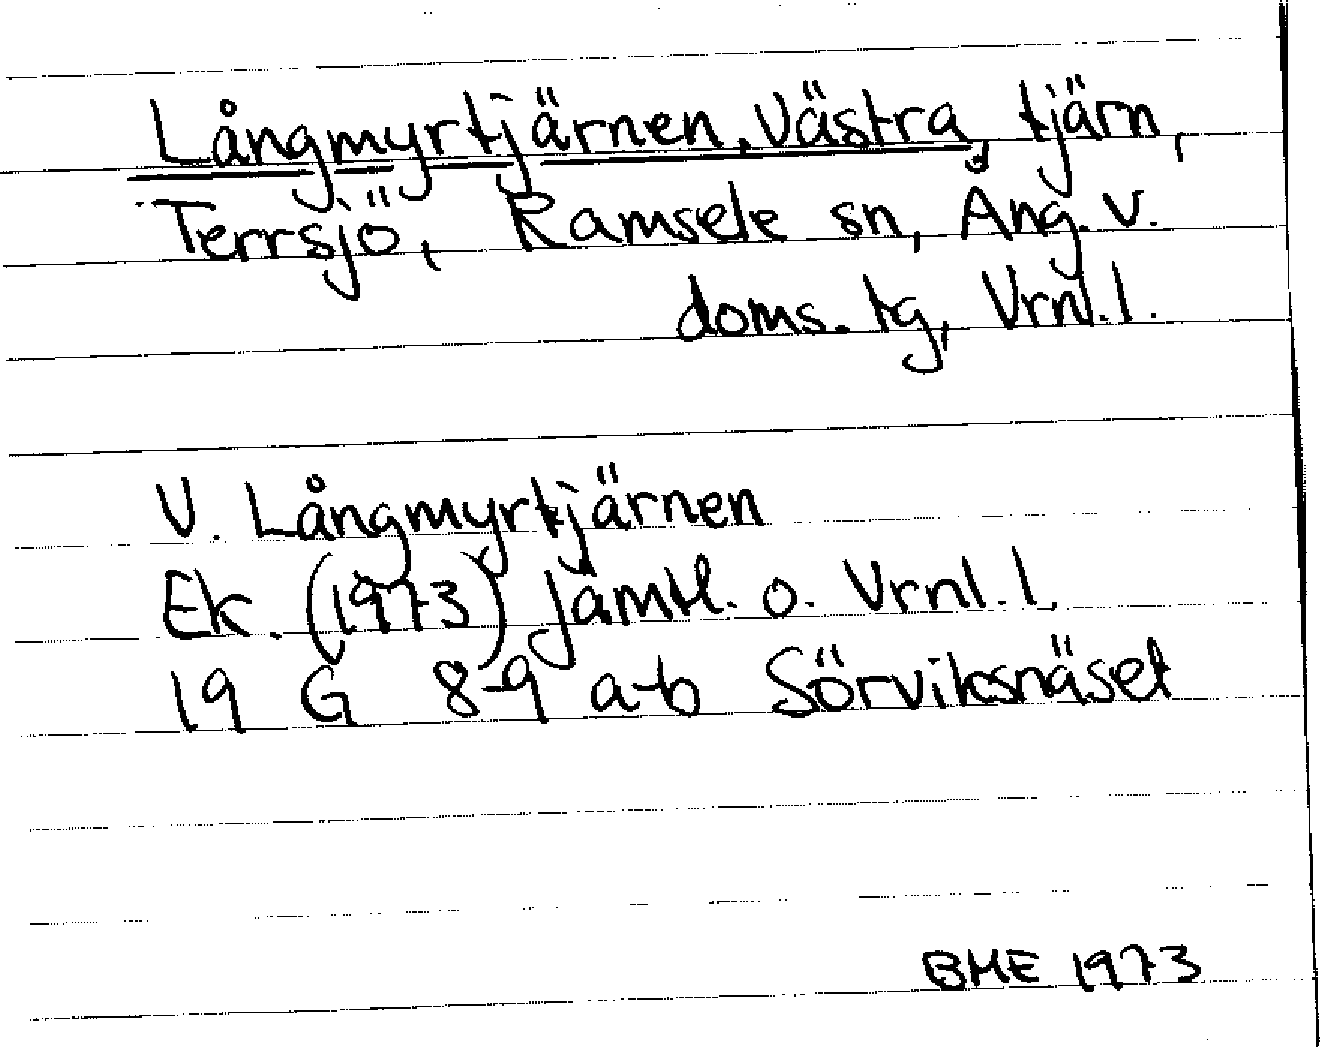 Långmyrtjärnen, Västra, tjärn,
Terrsjö, Ramsele sn, Ång. v.
doms. tg, Vrnl. l.
V. Långmyrtjärnen
Ek. (1973) Jämtl. o. Vrnl. l.
19 G 8-9 a-b Sörviksnäset
BME 1973